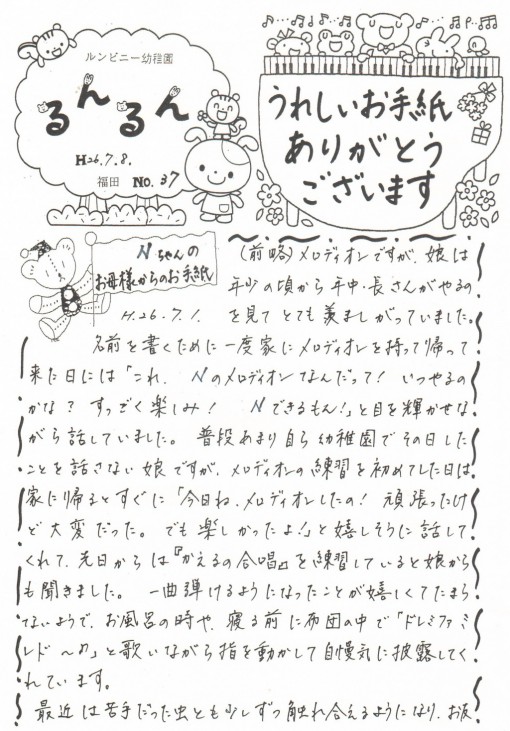 ルンビニー幼稚園
るんるん
H26.7.8.
福田 NO.37
うれしいお手紙
ありがとう
ございます
Nちゃんの
お母様からのお手紙
H.26.7.1.
(前略)メロディオンですが、娘は
年少の頃から年中・長さんがやるの
を見てとても羨ましがっていました。
名前を書くために一度家にメロディオンを持って帰って
来た日には「これ、Nのメロディオンなんだって! いつやるの
かな? すっごく楽しみ! Nできるもん!」と目を輝かせな
がら話していました。普段あまり自ら幼稚園でその日した
ことを話さない娘ですが、メロディオンの練習を初めてした日は
家に帰るとすぐに「今日ね、メロディオンしたの! 頑張ったけ
ど大変だった。でも楽しかったよ!」と嬉しそうに話して
くれて、先日からは『かえるの合唱』を練習していると娘から
も聞きました。一曲弾けるようになったことが嬉しくてたまら
ないようで、お風呂の時や、寝る前に布団の中で「ドレミファミ
レド〜♪」と歌いながら指を動かして自慢気に披露してく
れています。
最近は苦手だった虫とも少しずつ触れ合えるようになり、お友